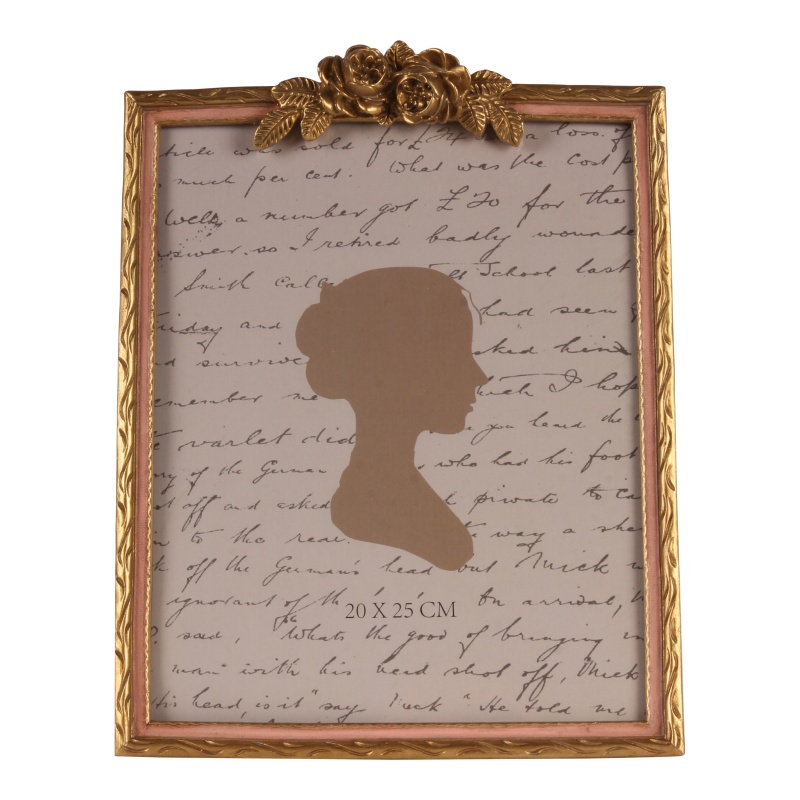 was sold for £ a loss. of
much per cent. What was the cost
Well, a number got £20 for the
so I retired badly wounde
Smith calle School last
Friday and had seen
d survive sked him
emember me hich I hop
e varlet did you heard the
ry of the German who had his foot
t off and asked private to ca
to the rear. way a she
k off the German's head but Mick w
ignorant of th On arrival,
20 X 25 CM
? said, "Whats the good of bringing
man" with his head shot off, Mick
His head, is it" say Mick "He told me